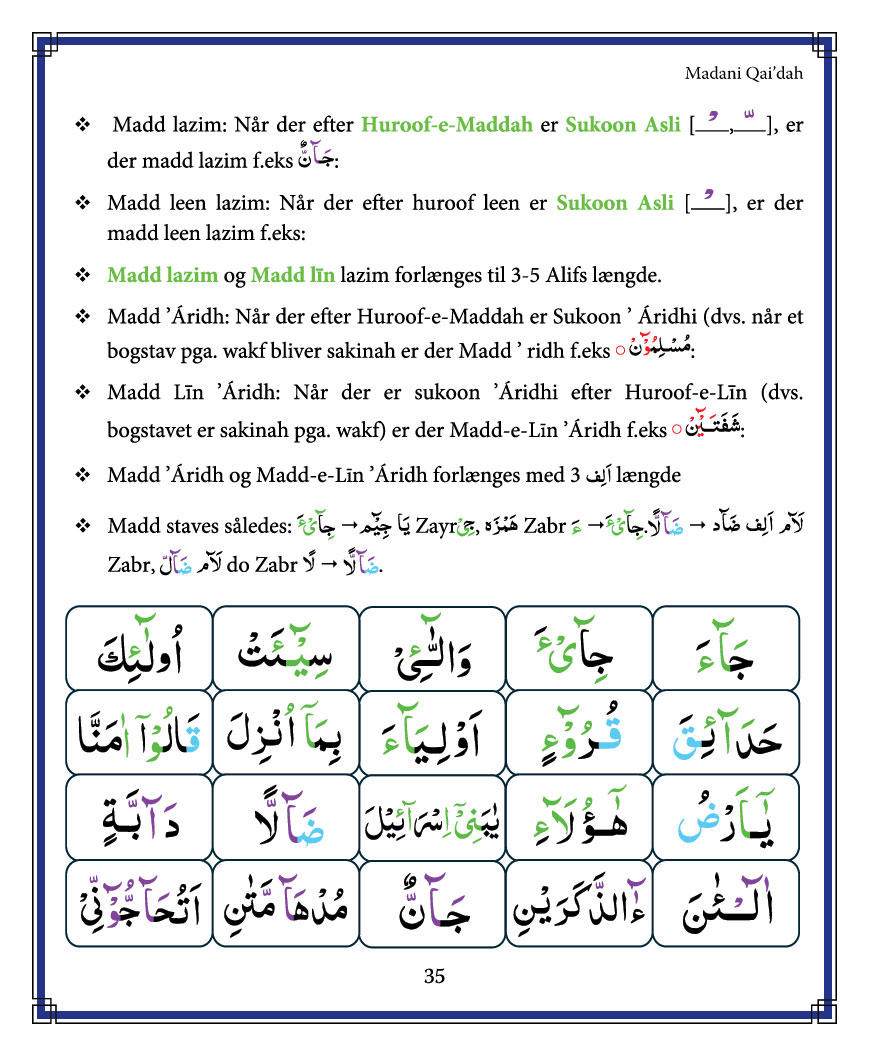 Madani Qai’dah
❖ Madd lazim: Når der efter Huroof-e-Maddah er Sukoon Asli [__ْ_,__ّ_], er
der madd lazim f.eks جَآنٌّ:
❖ Madd leen lazim: Når der efter huroof leen er Sukoon Asli [__ْ_], er der
madd leen lazim f.eks:
❖ Madd lazim og Madd līn lazim forlænges til 3-5 Alifs længde.
❖ Madd ’Áridh: Når der efter Huroof-e-Maddah er Sukoon ’ Áridhi (dvs. når et
bogstav pga. wakf bliver sakinah er der Madd ’ ridh f.eks مُسْلِمُوْٓنْ ○:
❖ Madd Līn ’Áridh: Når der er sukoon ’Áridhi efter Huroof-e-Līn (dvs.
bogstavet er sakinah pga. wakf) er der Madd-e-Līn ’Áridh f.eks شَفَتَيْٓنْ ○:
❖ Madd ’Áridh og Madd-e-Līn ’Áridh forlænges med 3 اَلِف længde
❖ Madd staves således: جِآیْءَ → جِیْٓم یَا Zayr جِیْ, هَمْزَه Zabr ءَ → جِآیْءَ. ضَآلًّا → لَآم اَلِف ضَآد
Zabr, ضَآلّ لَآم do Zabr لًا → ضَآلًّا.
جَآءَ جِآیْءَ وَالّٰٓـِٔیْ سِیْٓـَٔتْ اُولٰٓئِكَ
حَدَآئِقَ قُرُوْٓءٍ اَوْلِیَآءَ بِمَآ اُنْزِلَ قَالُوْٓا اٰمَنَّا
یٰٓاَرْضُ هٰٓؤُلَآءِ یٰبَنِیْٓ اِسْرَآئِیْلَ ضَآلًّا دَآبَّةٍ
آٰلْـٰٔنَ ءٰٓالذَّكَرَیْنِ جَآنٌّ مُدْهَآمَّتٰنِ اَتُحَآجُّوْٓنِّیْ
35